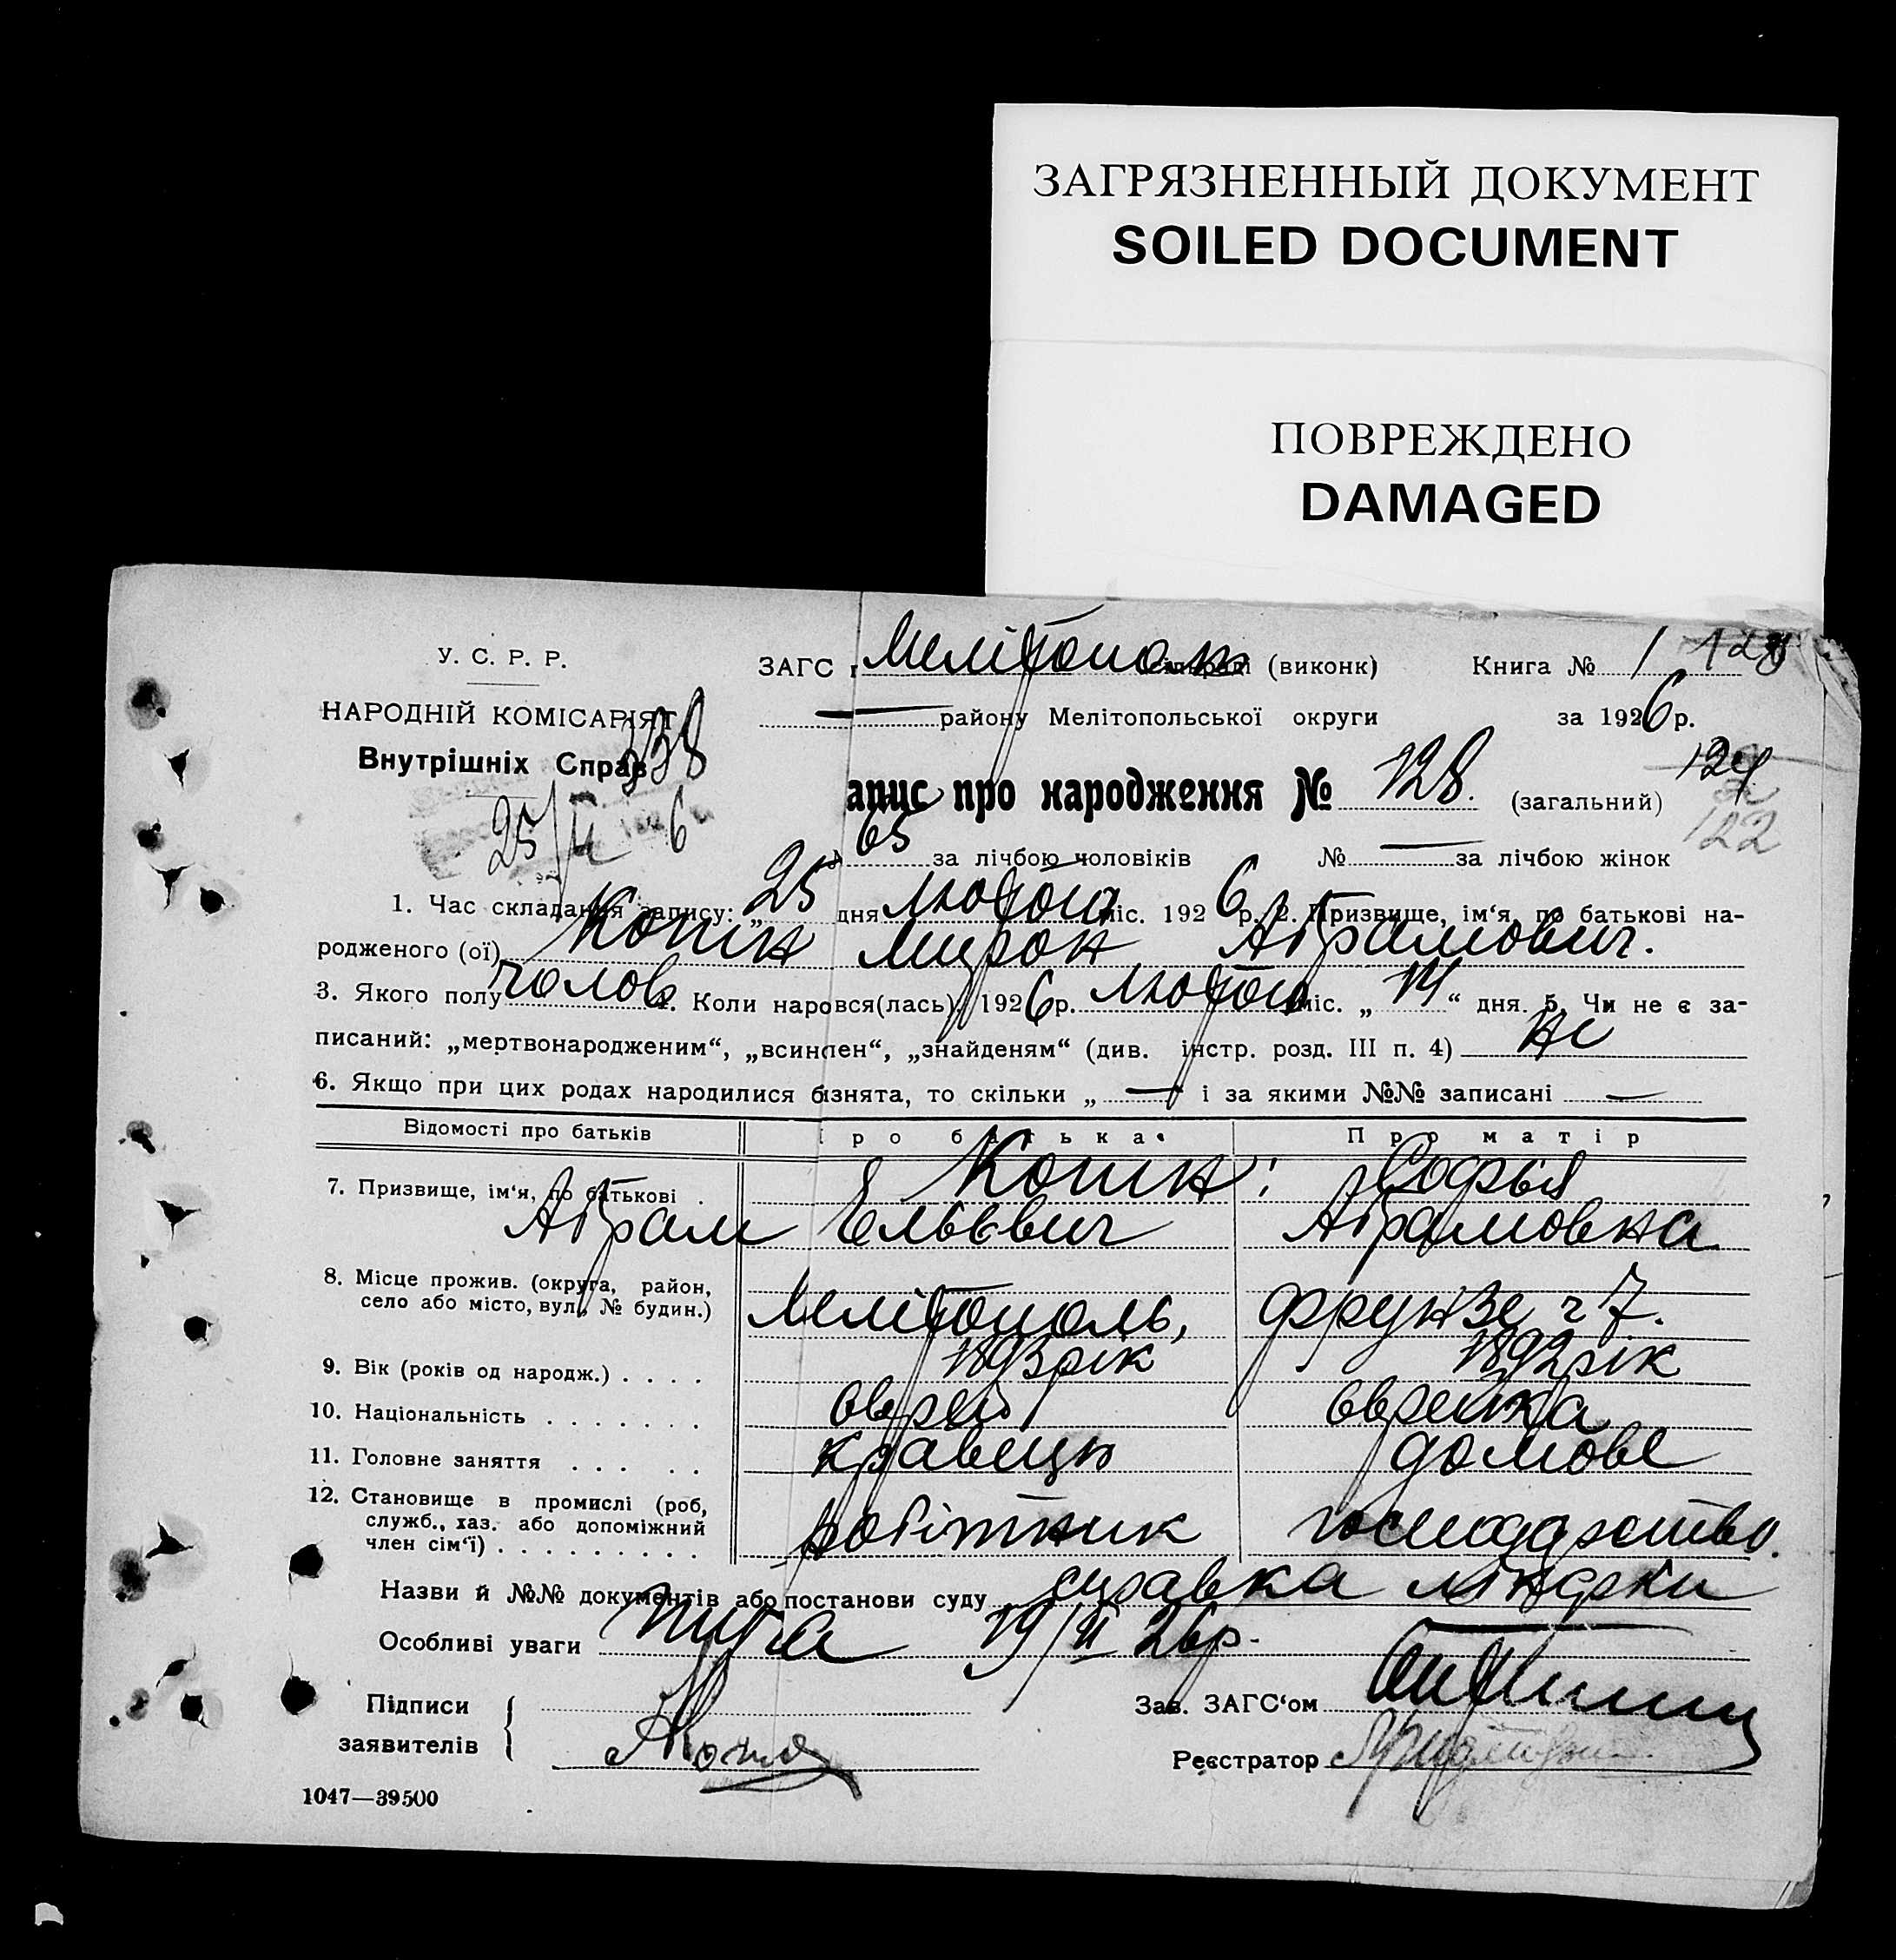 ЗАГРЯЗНЕННЫЙ ДОКУМЕНТ
SOILED DOCUMENT
ПОВРЕЖДЕНО
DAMAGED
У. С. Р. Р.
ЗАГС Мелітополь (виконк) Книга № 1 128
НАРОДНІЙ КОМІСАРІЯТ
району Мелітопольської округи за 1926 р.
Внутрішніх Справ
338
апис про народження № 128. (загальний)
122
25/II 6
65 за лічбою чоловіків № — за лічбою жінок
1. Час складання запису: „ 25 дня лютого міс. 1926 р. 2. Призвище, ім‘я, по батькові на-
родженого (ої) Мирон Абрамович.
3. Якого полу чолов 4. Коли наровся(лась). 1926 р. лютого міс. „ 14 “ дня. 5. Чи не є за-
писаний: „мертвонародженим“, „всиновлен“, „знайденям“ (див. інстр. розд. III п. 4) не
6. Якщо при цих родах народилися бізнята, то скільки „ — “ і за якими №№ записані —
Відомості про батьків
ро батька
Про матір
7. Призвище, ім‘я, по батькові .
Софья
Абрам Ельєвич Абрамовна
8. Місце прожив. (округа, район,
село або місто, вул., № будин.) Мелітополь, Фрунзе ч 7.
9. Вік (років од народж.) . . . . 1893 рік 1892 рік
10. Національність . . . . . . . еврей еврейка
11. Головне заняття . . . . . кравець домове
12. Становище в промислі (роб,
служб., хаз. або допоміжний
член сім‘ї) . . . . . . . . . робітник господарство.
Назви й №№ документів або постанови суду справка
Особливі уваги 19/II 26 р.
Підписи
заявителів
Зав. ЗАГС‘ом
Реєстратор
1047—39500